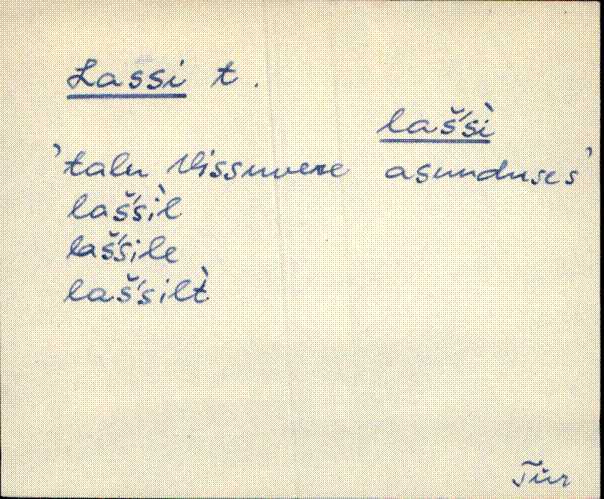 Lassi t.
laš́śì
'talu Vissuvere asunduses'
laš́śìl
laš́śile
laš́śilt̀
Tür